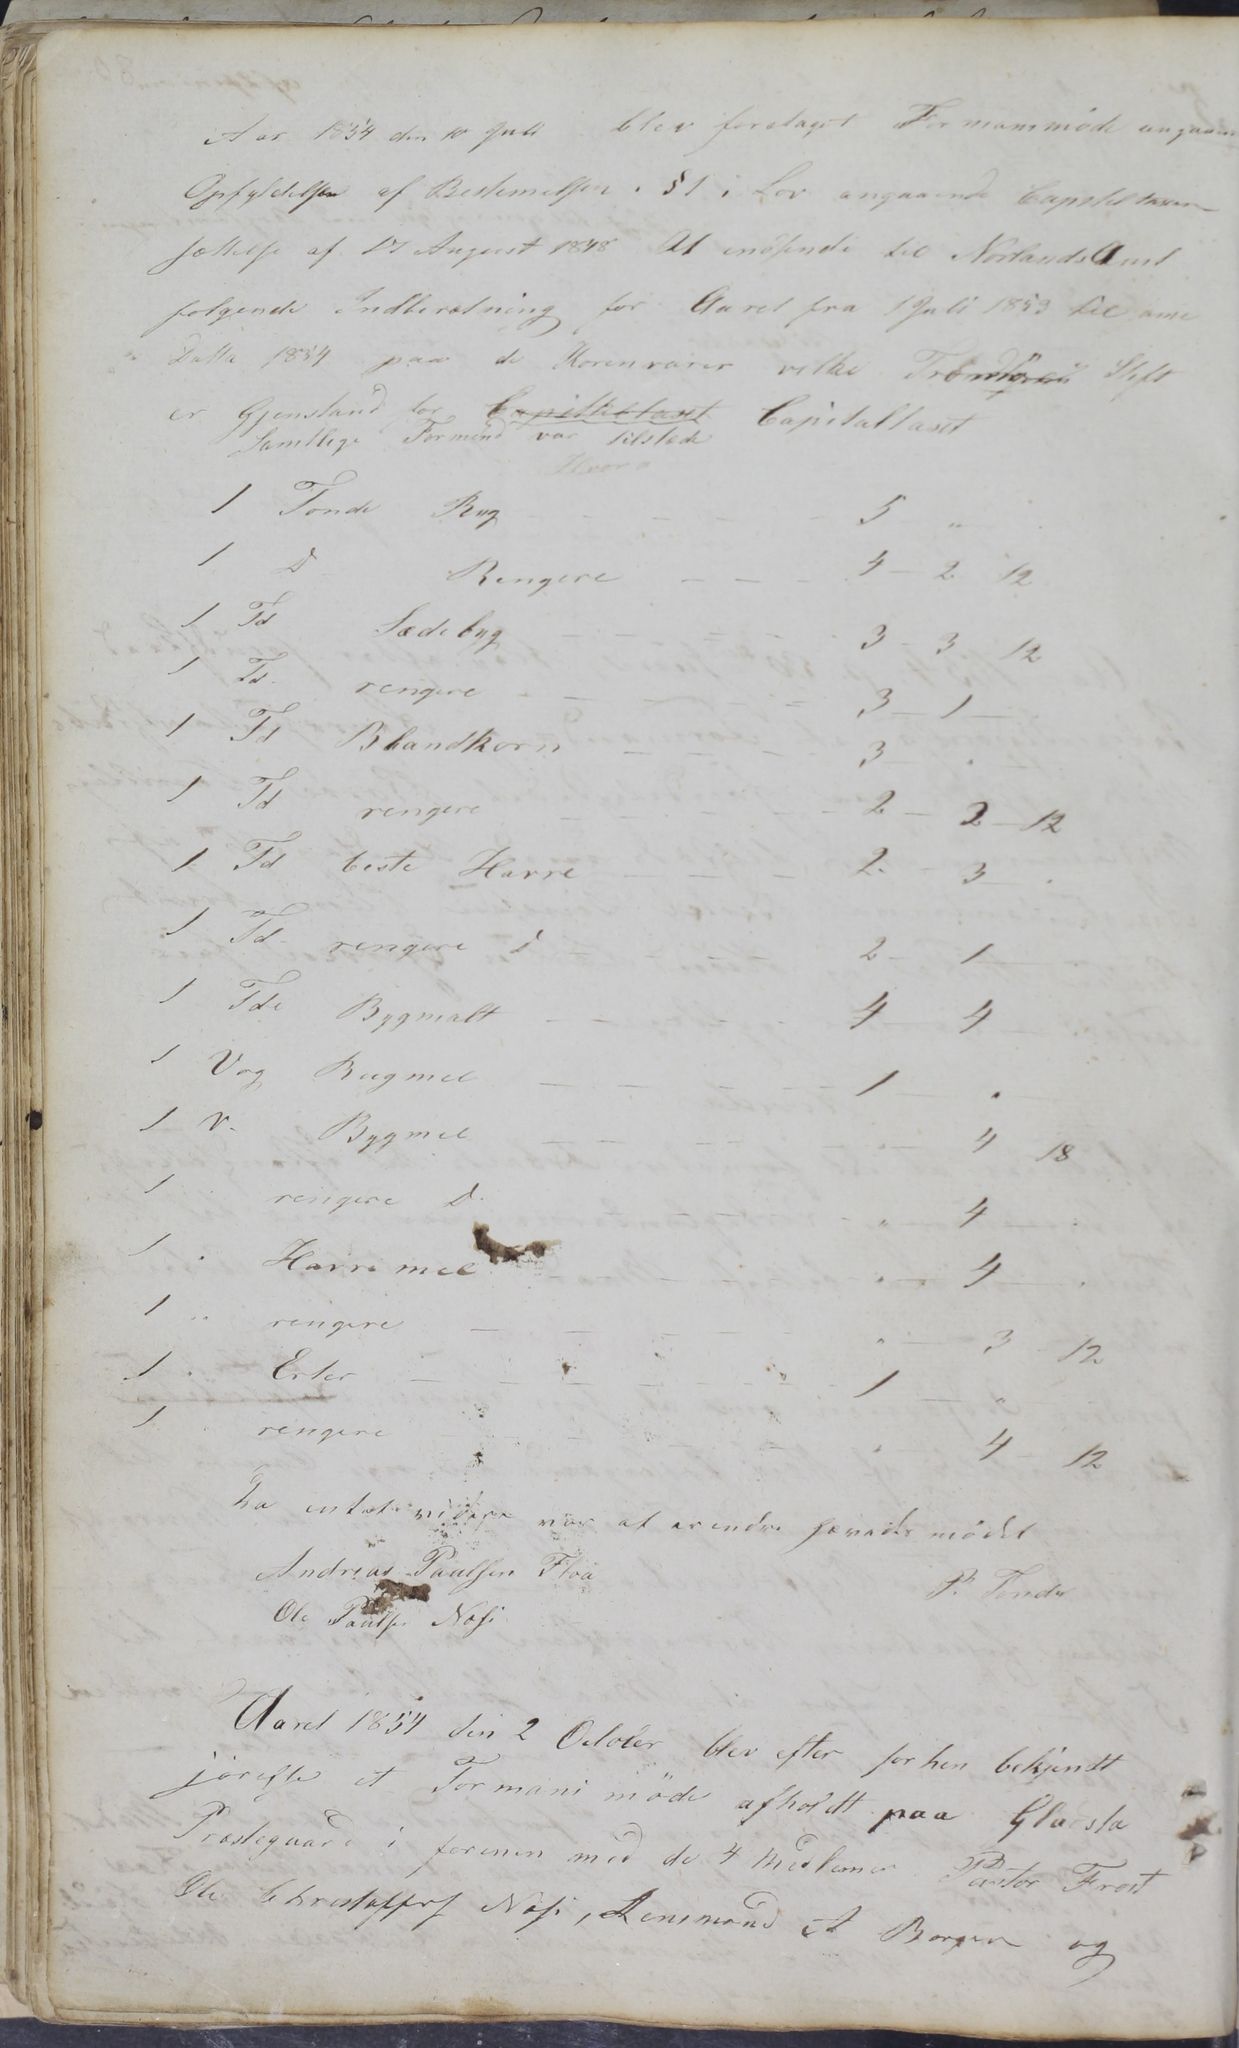 Aar 1854 den 10 Juli blev foretaget Formansmöde angaaen
Opfyldelsen af Bestemelsen i §1 i Lov angaaende Capitels taxen
sættelse af 17 August 1848 At indsende til Norlands Amt
folgende Indberetning for Aaret fra 1 Juli 1853 til ame
Datta 1854 paa de Korenvarer vilke Stift
er Gjenstand for Capitelstaxt Capitaltaxt
Samtlige Formend var tilstede
1 Tonde Rug - - - - 5 " .
1 D Rengere - - - 4 - 2 12
1 Td Sædebyg - - - - 3 - 3 12
1 Td. rengere - - - - 3 - 1 -
1 Td Blandkorn - - - 3 - . -
1 Td rengere - - - - 2 - 2 - 12
1 Td beste Havre - - - 2. - 3 - .
1 Td. rengere d - - - 2 - 1 - .
1 Tde Bygmalt - - - - 4 - 4 -
1 Vog Rugmel - - - - 1 - . -
1 V. Bygmel - - - . - 4 18
1 rengere D. - - - - " - 4 - .
1 . Havremel - - - - . - 4 - .
1 " rengere - - - - " - 3 - 12
1 . Erter - - - - - 1 - " -
1 . rengere - - - - . 4 - 12
Da intet videre var at erindre hævedes mödet
Andreas Paulsen Floa P. Tender
Ole Paulse Næsi
Aaret 1854 den 2 October blev efter forhen bekjendt
jörelse et Formansmöde afholdt paa Gladsta
Præstegaard i forenen med de 4 Medlemer Pastor Frost
Ole Christoffers Næsi, Lensmand A Borgen og